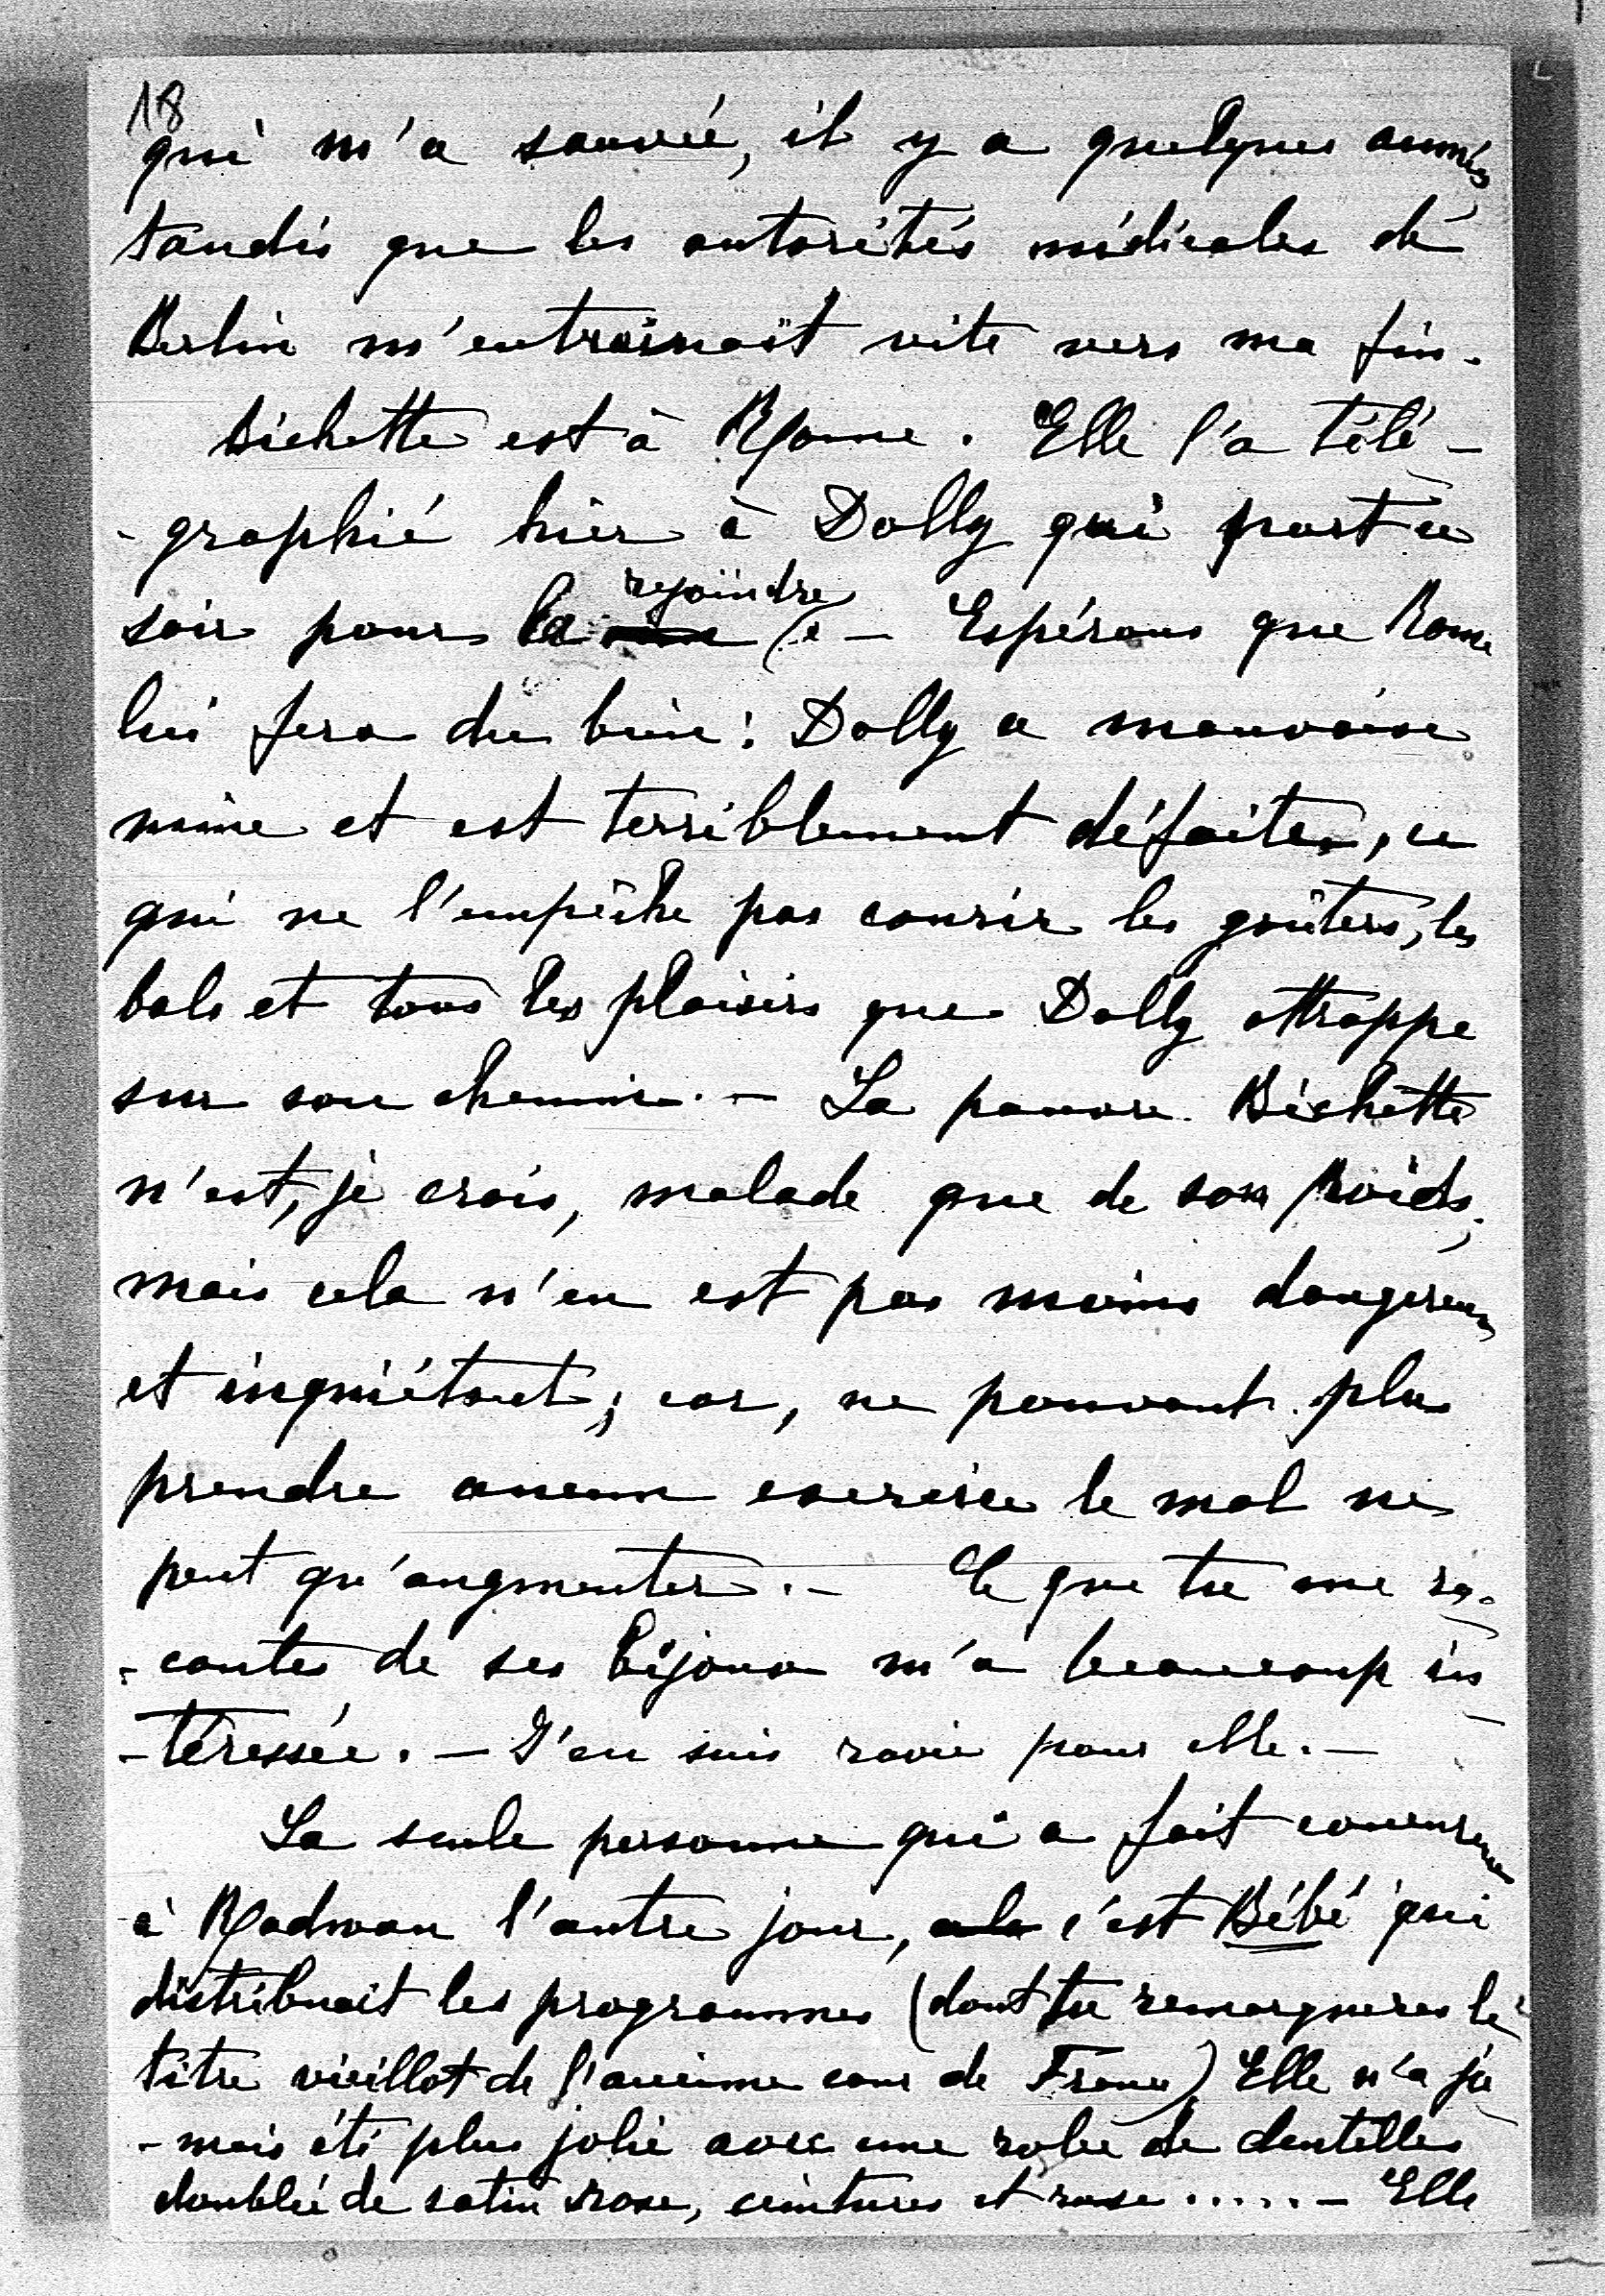 18
qui m'a sauvée, il y a quelques années
tandis que les autorités médicales de
Berlin m'entraînait vite vers ma fin.
Bichette est à Rome. Elle l'a télé-
-graphié hier à Dolly qui part ce
soir pour la rejoindre - Espérons que Rome
lui fera du bien: Dolly a mauvaise
mine et est terriblement défaite, ce
qui ne l'empêche pas courir les goûters, les
bals et tous les plaisirs que Dolly attrappe
sur son chemin. - La pauvre Bichette
n'est, je crois, malade que de son poids,
mais cela n'en est pas moins dangereux
et inquiétant; car, ne pouvant plus
prendre aucun exercice le mal ne
peut qu'augmenter. - Ce que tu me ra-
-contes de ses bijoux m'a beaucoup in
-téressée. - J'en suis ravie pour elle. -
La seule personne qui a fait
à Radwan l'autre jour, c'est Bébé qui
distribuait les programmes (dont tu remarqueras le
titre vieillot de l'ancienne cour de France) Elle n'a ja
-mais été plus jolie avec une robe de dentelles
doublée de satin rose, ceintures et rose ..... - Elle